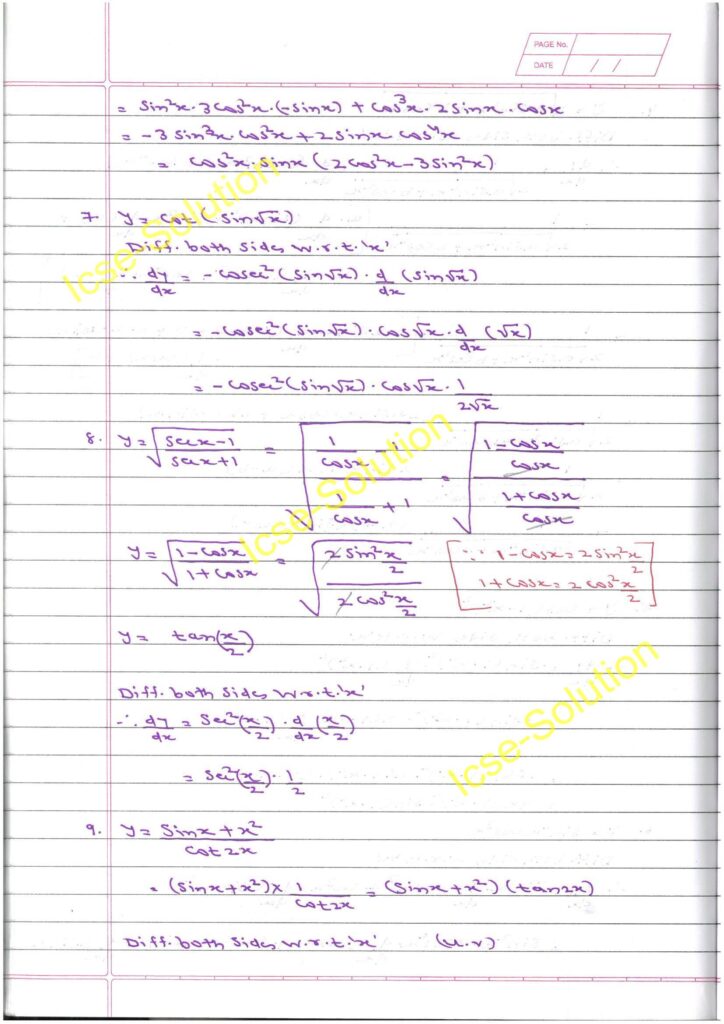 PAGE No.
DATE / /
= Sin²x·3cos²x·(-sinx) + cos³x·2sinx·cosx
= -3 sin³x·cos²x + 2sinx cos⁴x
= cos²x·sinx (2cos²x - 3sin²x)
7. y = cot (sin√x)
Diff. both sides w.r.t. 'x'
∴ dy/dx = -cosec² (sin√x) · d/dx (sin√x)
= -cosec² (sin√x) · cos√x · d/dx (√x)
= -cosec² (sin√x) · cos√x · 1/2√x
8. y = √((secx-1)/(secx+1)) = √((1/cosx - 1)/(1/cosx + 1)) = √(((1-cosx)/cosx)/((1+cosx)/cosx))
y = √((1-cosx)/(1+cosx)) = √((2sin²x/2)/(2cos²x/2)) [∵ 1-cosx = 2sin²x/2
1+cosx = 2cos²x/2]
y = tan(x/2)
Diff. both sides w.r.t. 'x'
∴ dy/dx = sec²(x/2) · d/dx (x/2)
= sec²(x/2) · 1/2
9. y = (Sinx + x²)/cot2x
= (sinx+x²) × 1/cot2x = (sinx+x²) (tan2x)
Diff. both sides w.r.t. 'x' (u.v)
Icse-Solution
Icse-Solution
Icse-Solution